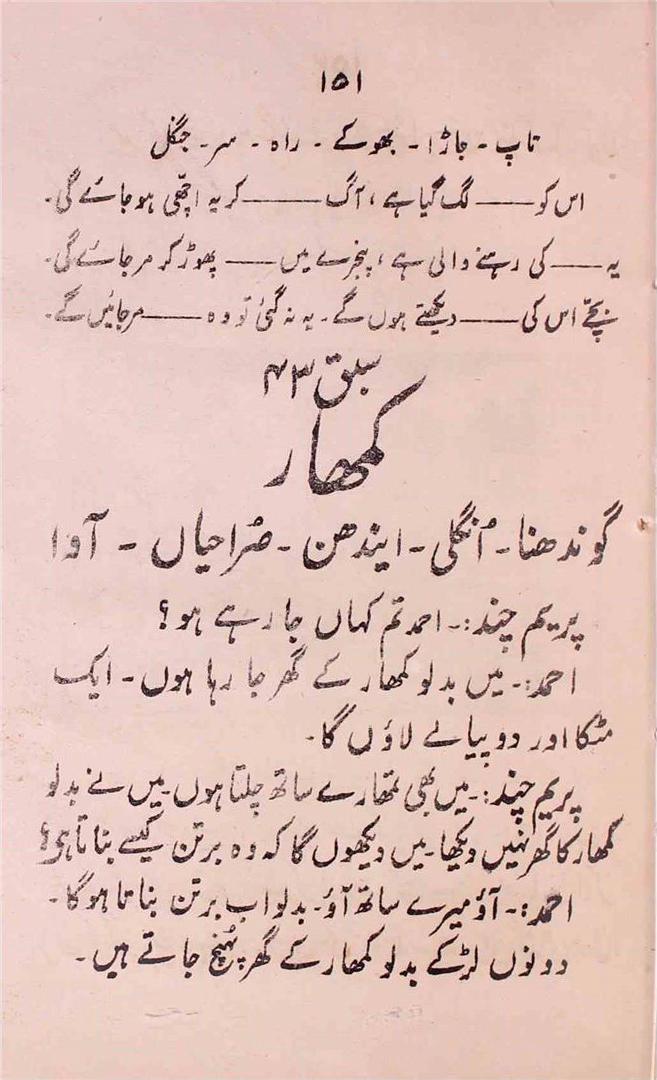 ۱۵۱
تاپ - جاڑا - بھوکے - راہ - سر - جنگل
اس کو ——— لگ گیا ہے، آگ ——— کر یہ اچھی ہو جائے گی۔
یہ ——— کی رہنے والی ہے، پنجرے میں ——— پھوڑ کر مر جائے گی۔
بچے اس کی ——— دیکھتے ہوں گے۔ یہ نہ گئی تو وہ ——— مر جائیں گے۔
سبق ۴۳
کمھار
گوندھنا - اُنگلی - ایندھن - صُراحیاں - آوا
پریم چند :۔ احمد تم کہاں جا رہے ہو؟
احمد :۔ میں بدلو کمھار کے گھر جا رہا ہوں۔ ایک
مٹکا اور دو پیالے لاؤں گا۔
پریم چند :۔ میں بھی تمھارے ساتھ چلتا ہوں۔ میں نے بدلو
کمھار کا گھر نہیں دیکھا۔ میں دیکھوں گا کہ وہ برتن کیسے بناتا ہے؟
احمد :۔ آؤ میرے ساتھ آؤ۔ بدلو اب برتن بناتا ہوگا۔
دونوں لڑکے بدلو کمھار کے گھر پہُنچ جاتے ہیں۔